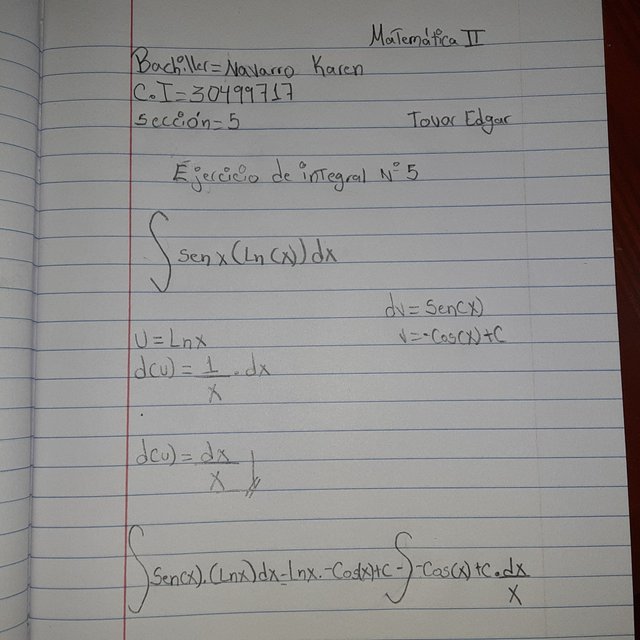 Matemática II
Bachiller= Navarro Karen
C.I=30499717
sección=5 Tovar Edgar
Ejercicio de integral N°5
∫ sen x (Ln (x)) dx
dv= Sen(x)
U=Lnx v=-Cos(x)+C
d(u)= 1/x . dx
d(u)= dx/x
∫ Sen(x).(Lnx)dx=Lnx.-Cos(x)+C-∫-Cos(x)+C.dx/x